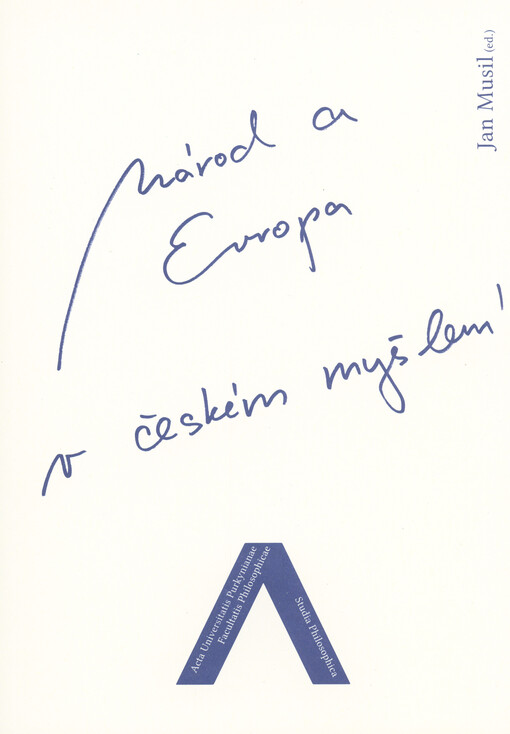 Jan Musil (ed.)
Národ a
Evropa
v českém myšlení
Acta Universitatis Purkynianae
Facultatis Philosophicae
Studia Philosophica